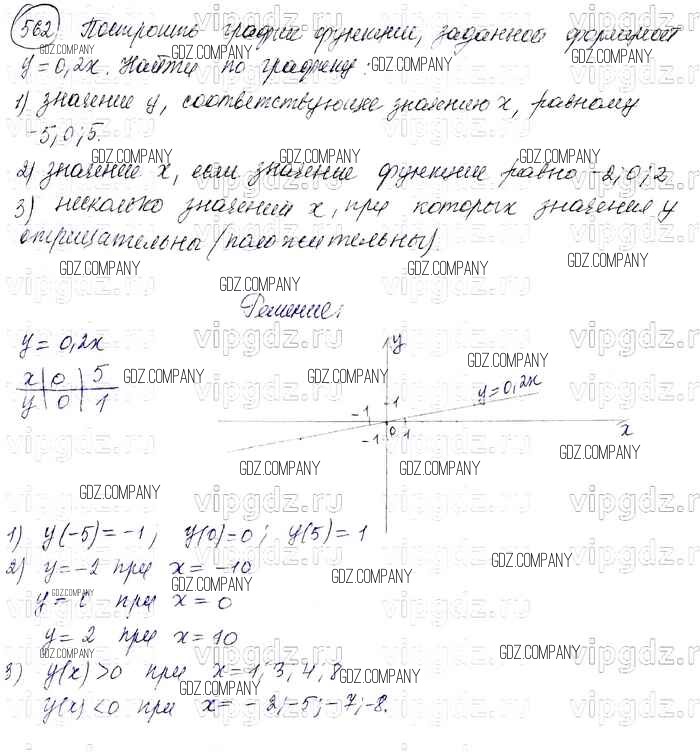 562. Построить график функции, заданной формулой
y = 0,2x. Найти по графику:
1) значение y, соответствующее значению x, равному
-5; 0; 5.
2) значение x, если значение функции равно -2; 0; 2
3) несколько значений x, при которых значения y
отрицательны (положительны).
Решение:
y = 0,2x
x | 0 | 5
y | 0 | 1
y
1
y=0,2x
-1
0
x
-1
1
1) y(-5) = -1; y(0)=0; y(5)=1
2) y=-2 при x = -10
y= при x = 0
y = 2 при x = 10
3) y(x)>0 при x=1; 3; 4; 8
y(x)<0 при x= -2; -5; -7; -8.
GDZ.COMPANY
vipgdz.ru